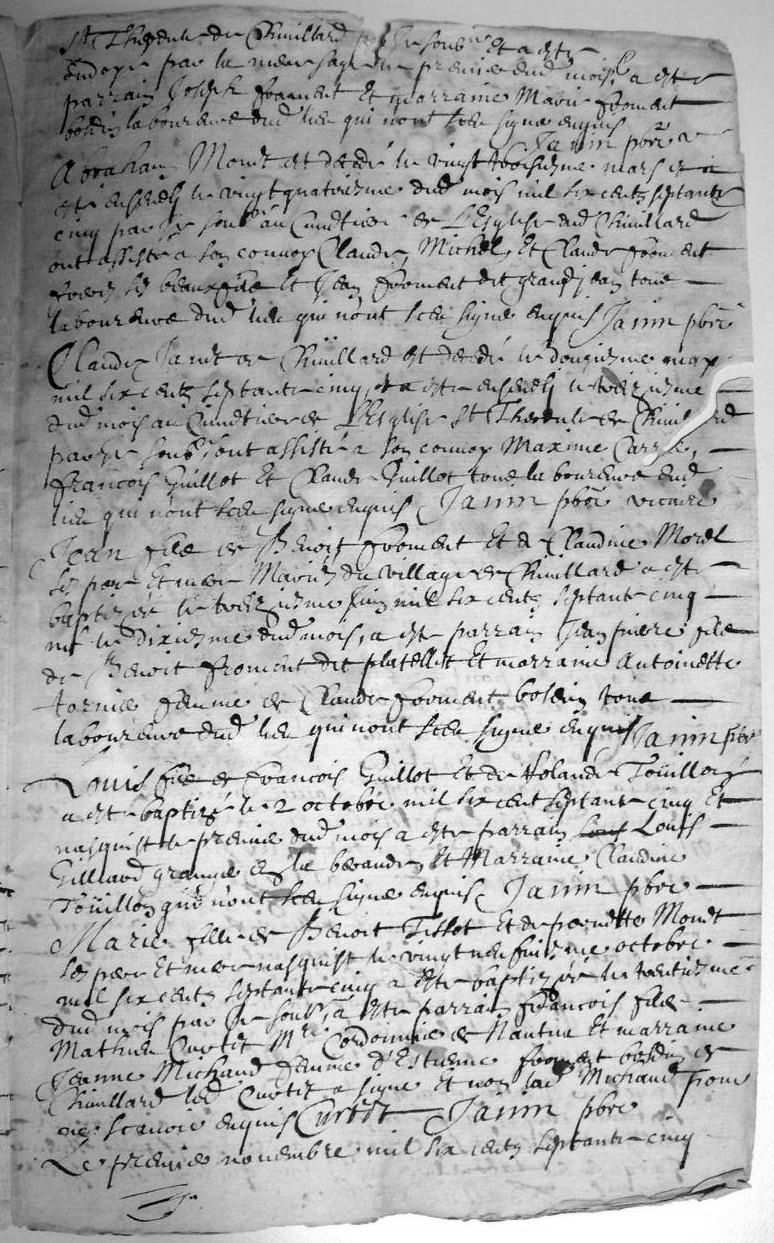 St Theodule de Chivillard par je soub.né et a este
endoye par la mere sage le premier dud mois, a este
parrain Joseph froment et marraine Marie froment
bossin laboureurs dud lieu qui n'ont sceu signe enquis
Janin pbre
Abraham Monet est decede le vingt troisiesme mars et a
este ensevely le vingt quatriesme dud mois mil six centz septante
cinq par je soub.né au Cimetiere de L'Esglise dud Chivillard
ont assisté a son convoy Claude, Michel, et Claude froment
freres ses beaux fils et Jean froment dit grand jean tous
laboureurs dud lieu qui n'ont sceu signe enquis Janin pbre
Claude de Chivillard est decedé le mars
mil six centz septante cinq et a este ensevely le treiziesme
dud mois au Cimetiere de L'Esglise St Theodule de Chivillard
par je soub.né ont assisté a son convoy Maxime
francois Guillot et Claude Guillot tous laboureurs dud
lieu qui n'ont sceu signe enquis Janin pbre vicaire
Jean filz de Benoit froment et de Claudine Morel
ses pere et mere Mariez du village de Chivillard a este
baptize le treiziesme juin mil six centz septante cinq
né le dixiesme dud mois, a este parrain Jean pierre filz
de Benoit froment dit platellet et marraine Antoinette
tornier femme de Claude froment bossin tous
laboureurs dud lieu qui n'ont sceu signe enquis Janin pbre
Louis filz de francois Guillot et de Holande Toüillon
a este baptizé le 2 octobre mil six cent septante cinq et
nasquist le premier dud mois a este parrain Louis
Gilliard granger et Marraine Claudine
Toüillon qui n'ont sceu signe enquis Janin pbre
Marie fille de Benoit Tissot et de pernette Monet
ses pere et mere nasquist le vingt neufviesme octobre
mil six centz septante cinq a este baptizée le trentiesme
dud mois par je soub.né a este parrain francois filz
Mathieu Curtet Mre Cordonnier de Nantua et marraine
Jeanne Michaud femme d'Estienne froment bossin de
Chivillard led Curtet a signe et non lad Michaud pour
ne scavoir enquis Curtet Janin pbre
Le premier novembre mil six centz septante cinq